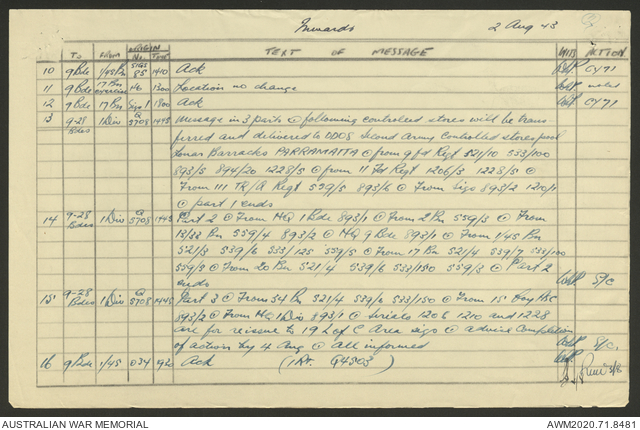 Inwards 2 Aug 43
TO FROM ORIGIN No. TIME TEXT OF MESSAGE ACTION
10 9 Bde 1/45 Bn SIGS 85 1410 Ack CY71
11 9 Bde 17 Bn 46 1300 Location no change noted
12 9 Bde 17 Bn Sigs 1 1800 Ack CY71
13 9-28 Bdes 1 Div Q 5708 1445 Message in 3 parts @ following controlled stores will be trans
ferred and delivered to DDOS Second Army Controlled stores pool
Lunar Barracks PARRAMATTA @ from 9 fd Regt 521/10 533/100
893/5 894/20 1228/5 @ from 11 Fd Regt 1206/5 1228/5 @
From 111 TR/A Regt 559/5 893/6 @ From Sigs 893/2 1210/1
@ part 1 ends
14 9-28 Bdes 1 Div Q 5708 1445 Part 2 @ From HQ 1 Bde 893/1 @ From 2 Bn 559/3 @ From
13/33 Bn 559/4 893/2 @ HQ 9 Bde 893/1 @ From 1/45 Bn
521/3 539/6 533/125 559/5 @ From 17 Bn 521/4 539/7 533/100
559/5 @ From 20 Bn 521/4 539/6 533/150 559/3 @ Part 2
ends S/C
15 9-28 Bdes 1 Div Q 5708 1445 Part 3 @ From 34 Bn 521/4 539/6 533/150 @ From 15 Coy
893/2 @ From HQ 1 Div 393/1 @ serials 1206 1210 and 1228
are for reissue to 19 L of C Area sigs @ advise Completion
of action by 4 Aug @ All informed S/C.
16 9 Bde 1/45 034 920 Ack (1 Div. Q4503) 3/8
AUSTRALIAN WAR MEMORIAL AWM2020.71.8481